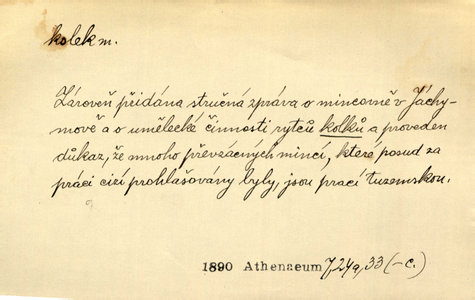 kolek m.
Zároveň přidána stručná zpráva o mincovně v Jáchy-
mově a o umělecké činnosti rytců kolků a proveden
důkaz, že mnoho převzácných mincí, které posud za
práci cizí prohlašovány byly, jsou prací tuzemskou.
1890 Athenaeum 7 24a, 33 (-c.)